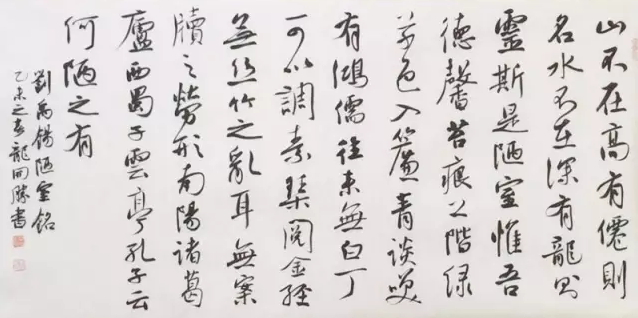 山不在高有僊則
名水不在深有龍則
靈斯是陋室惟吾
德馨苔痕上階緑
草色入簾青談笑
有鴻儒往来無白丁
可以調素琴閲金経
無丝竹之亂耳無案
牘之勞形南陽諸葛
廬西蜀子雲亭孔子云
何陋之有
劉禹錫陋室銘
乙未之春龍開勝書